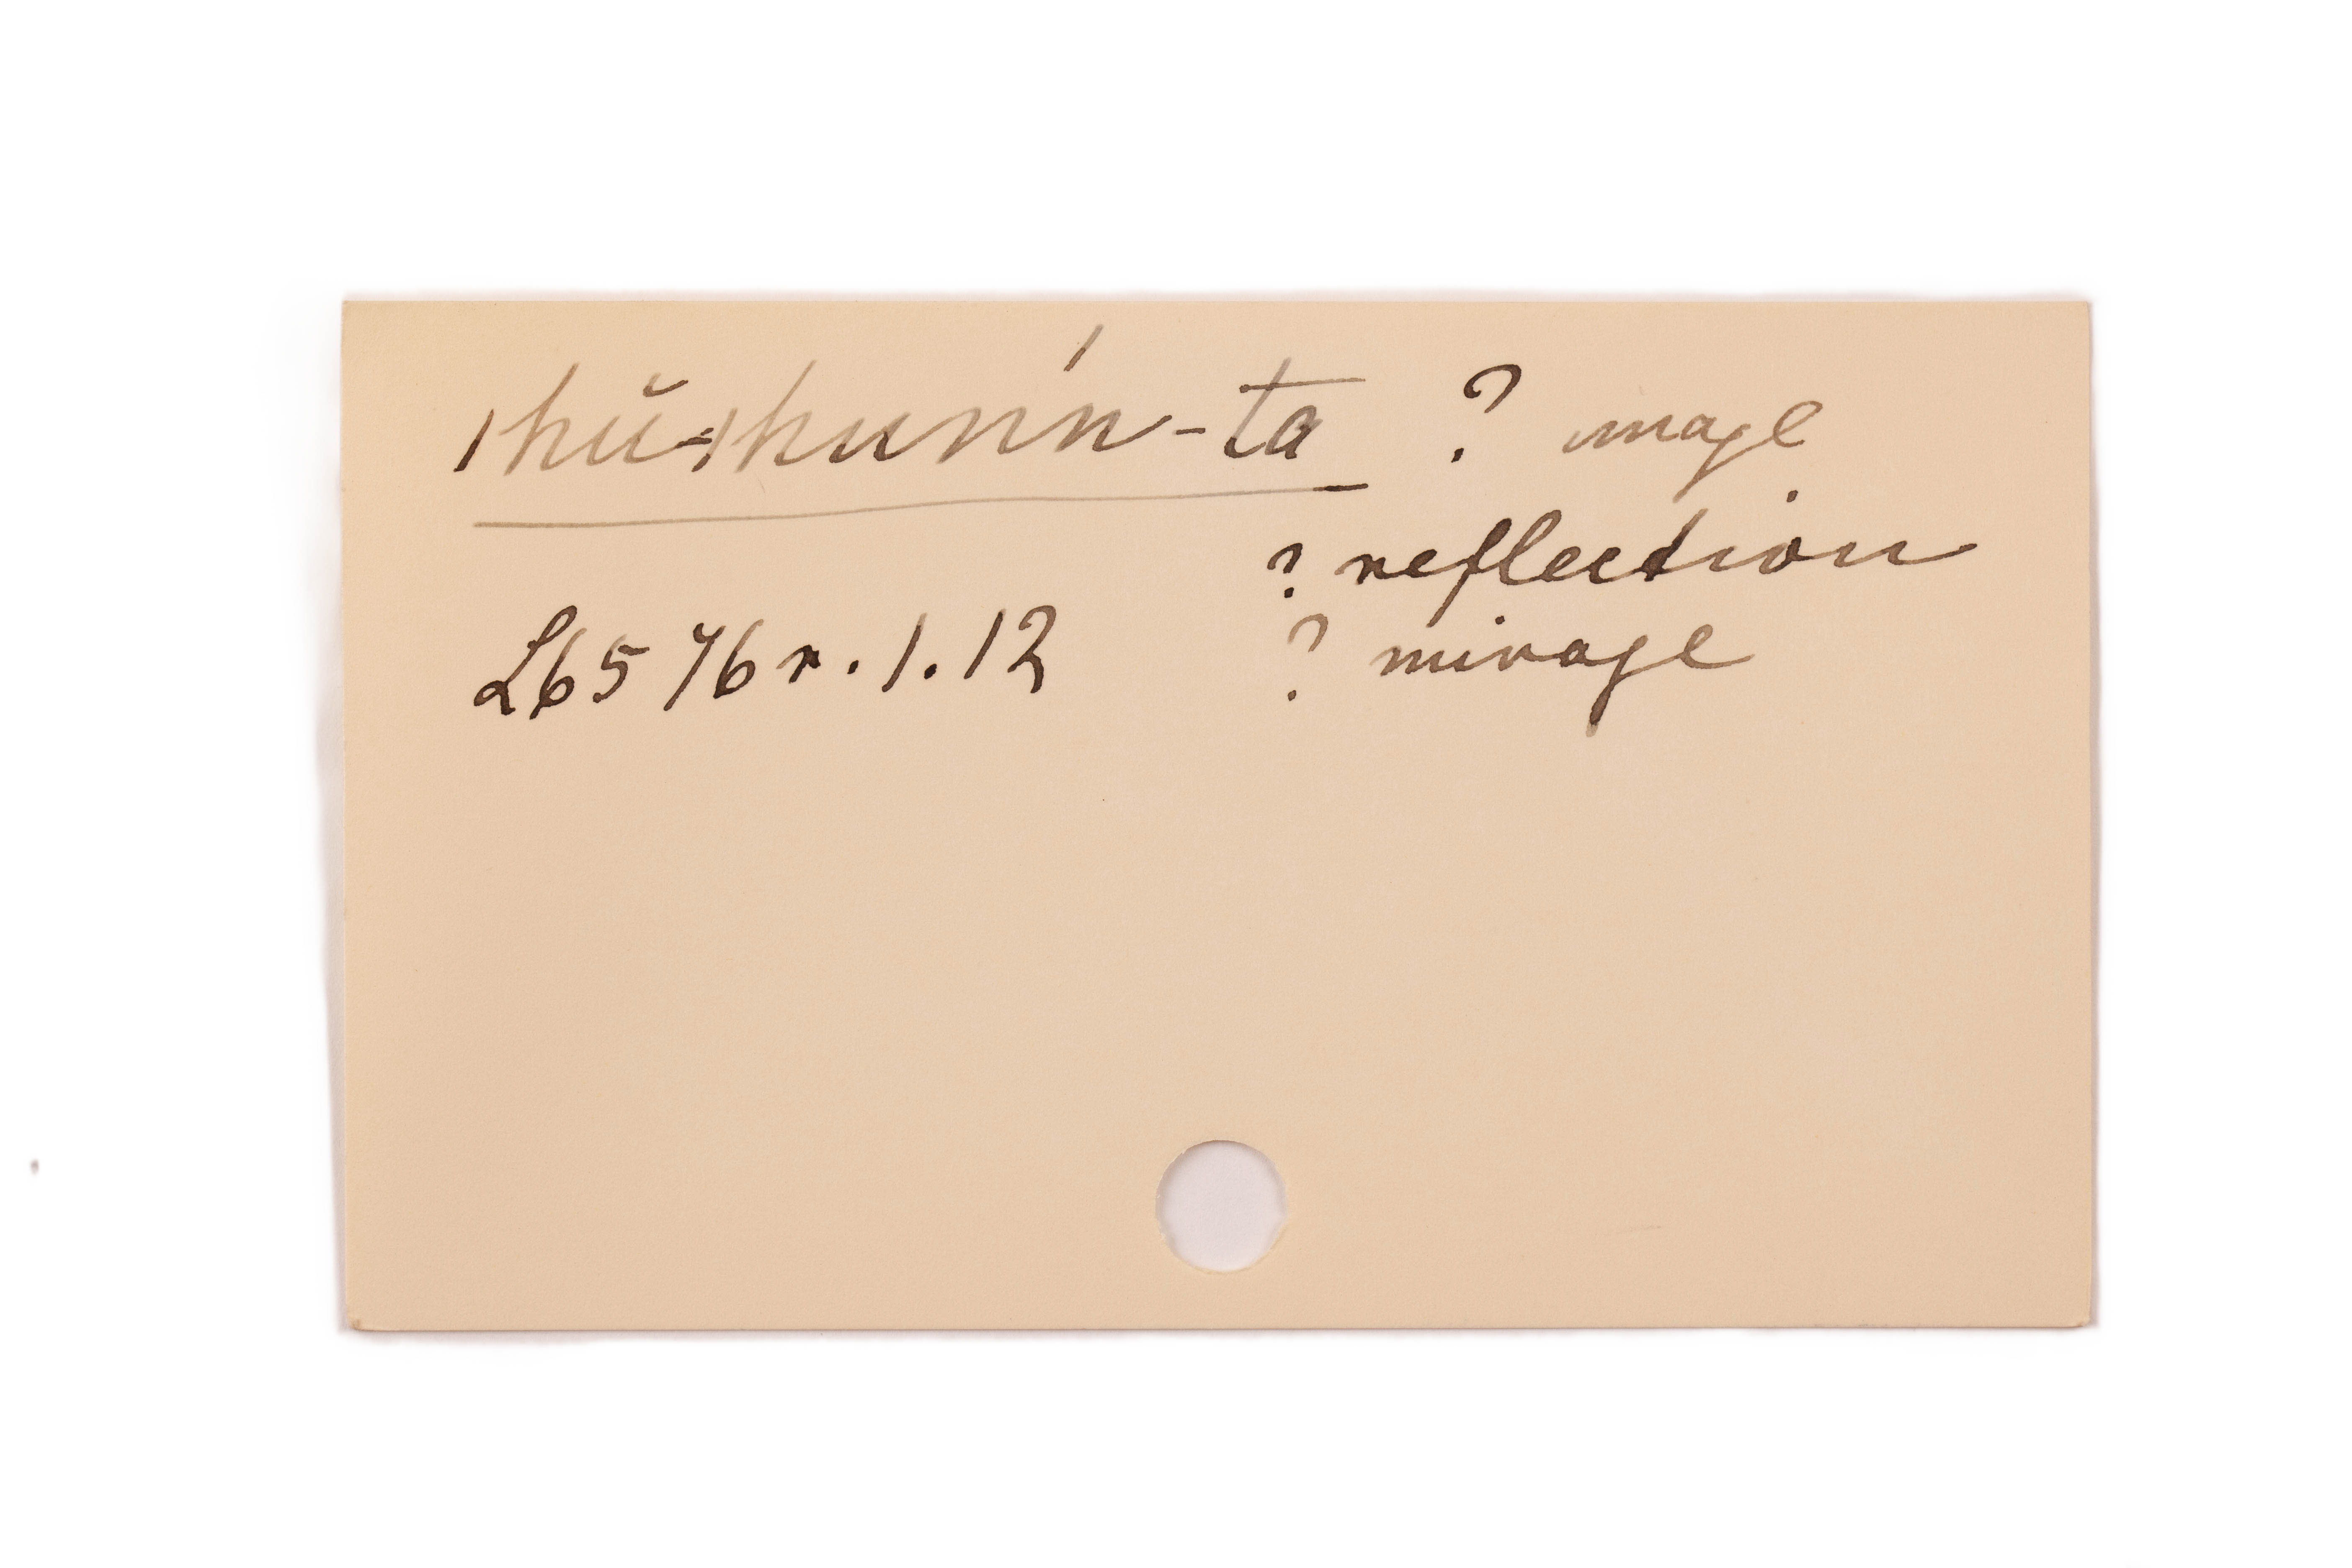 shŭ-shunń-ta ? image
? reflection
L65 76r.1.12 ? mirage